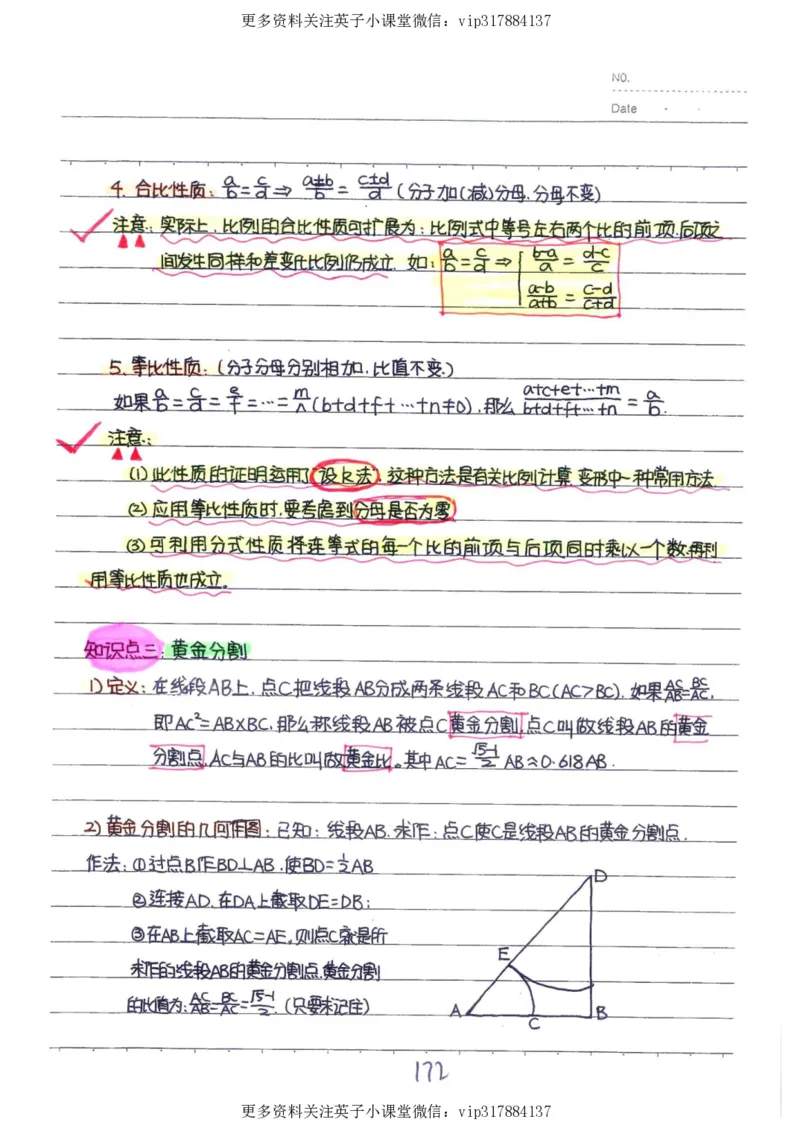 更多资料关注英子小课堂微信：vip317884137
NO.
Date
4. 合比性质：a/b=c/d⇒ (a±b)/b=(c±d)/d (分子加(减)分母,分母不变)
注意：实际上，比例的合比性质可扩展为：比例式中等号左右两个比的前项.后项之
间发生同样和差变化比例仍成立. 如：a/b=c/d⇒{ (b-a)/a=(d-c)/c
(a-b)/(a+b)=(c-d)/(c+d)
5、等比性质：(分子分母分别相加，比值不变.)
如果a/b=c/d=e/f=…=m/n(b+d+f+…+n≠0),那么 (a+c+e+…+m)/(b+d+f+…+n)=a/b.
注意：
(1)此性质的证明运用了(设k法),这种方法是有关比例计算,变形中一种常用方法.
(2)应用等比性质时,要考虑到分母是否为零
(3)可利用分式性质将连等式的每一个比的前项与后项同时乘以一个数,再利
用等比性质也成立。
知识点三：黄金分割
1)定义：在线段AB上，点C把线段AB分成两条线段AC和BC(AC>BC).如果AC/AB=BC/AC,
即AC²=AB×BC,那么称线段AB被点C黄金分割,点C叫做线段AB的黄金
分割点,AC与AB的比叫做黄金比。其中AC=(√5-1)/2 AB≈0.618AB.
2)黄金分割的几何作图：已知：线段AB.求作：点C使C是线段AB的黄金分割点.
作法：①过点B作BD⊥AB,使BD=1/2AB
②连接AD,在DA上截取DE=DB;
③在AB上截取AC=AE,则点C就是所
求作的线段AB的黄金分割点.黄金分割
的比值为：AC/AB=BC/AC=(√5-1)/2.(只要求记住)
D
E
A
C
B
172
更多资料关注英子小课堂微信：vip317884137